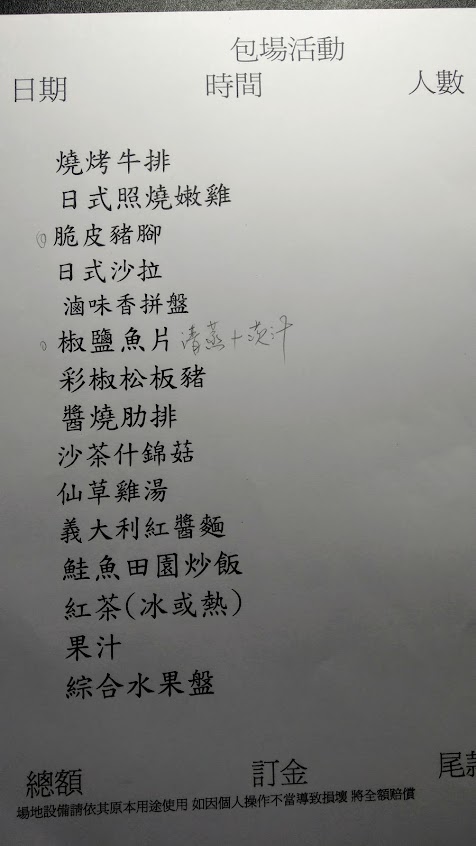 包場活動
日期 時間 人數
燒烤牛排
日式照燒嫩雞
脆皮豬腳
日式沙拉
滷味香拼盤
椒鹽魚片 清蒸+
彩椒松板豬
醬燒肋排
沙茶什錦菇
仙草雞湯
義大利紅醬麵
鮭魚田園炒飯
紅茶(冰或熱)
果汁
綜合水果盤
總額 訂金 尾款
場地設備請依其原本用途使用 如因個人操作不當導致損壞 將全額賠償